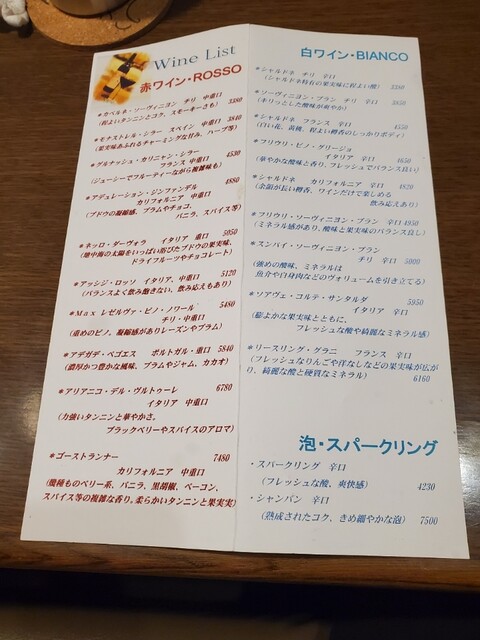 Wine List
赤ワイン・ROSSO
*カベルネ・ソーヴィニヨン チリ 中重口
(程よいタンニンとコク、スモーキーさも) 3380
*モナストレル・シラー スペイン 中重口 3840
(果実味あふれるチャーミングな甘み、ハーブ等)
*グルナッシュ・カリニャン・シラー 4530
フランス 中重口
(ジューシーでフルーティーながら複雑味も)
*アデュレーション・ジンファンデル 4980
カリフォルニア 中重口
(ブドウの凝縮感、プラムやチョコ、
バニラ、スパイス等)
*ネッロ・ダーヴォラ イタリア 重口 5050
(地中海の太陽をいっぱい浴びたブドウの果実味、
ドライフルーツやチョコレート)
*アッシジ・ロッソ イタリア、中重口 5120
(バランスよく飲み飽きない、飲み応えもあり)
*Max レゼルヴァ・ピノ・ノワール 5480
チリ・中重口
(重めのピノ、凝縮感がありレーズンやプラム)
*アデガデ・ペゴエス ポルトガル・重口 5840
(濃厚かつ豊かな風味、プラムやジャム、カカオ)
*アリアニコ・デル・ヴルトゥーレ 6780
イタリア 中重口
(力強いタンニンと華やかさ。
ブラックベリーやスパイスのアロマ)
*ゴーストランナー 7480
カリフォルニア 中重口
(幾種ものベリー系、バニラ、黒胡椒、ベーコン、
スパイス等の複雑な香り。柔らかいタンニンと果実実)
白ワイン・BIANCO
*シャルドネ チリ 辛口
(シャルドネ特有の果実味に程よい酸) 3380
*ソーヴィニヨン・ブラン チリ 辛口
(キリッとした酸味が爽やか)
*シャルドネ フランス 辛口 4550
(白い花、黄桃、程よい樽香のしっかりボディ)
*フリウリ・ピノ・グリージョ
イタリア 辛口 4650
(華やかな酸味と香り、フレッシュでバランス良い)
*シャルドネ カリフォルニア 辛口 4820
(余韻が長い樽香、ワインだけで楽しめる
飲み応えあり)
*フリウリ・ソーヴィニヨン・ブラン 辛口 4950
(ミネラル感があり、酸味と果実味のバランス良し)
*スンバイ・ソーヴィニヨン・ブラン
チリ 辛口 5000
(強めの酸味、ミネラルは
魚介や白身肉などのヴォリュームを引き立てる)
*ソアヴェ・コルテ・サンタルダ 5950
イタリア 辛口
(膨よかな果実味とともに、
フレッシュな酸や綺麗なミネラル感)
*リースリング・グラニ フランス 辛口
(フレッシュなりんごや洋なしなどの果実味が広が
り、綺麗な酸と硬質なミネラル) 6160
泡・スパークリング
・スパークリング 辛口
(フレッシュな酸、爽快感) 4230
・シャンパン 辛口
(熟成されたコク、きめ細やかな泡) 7500